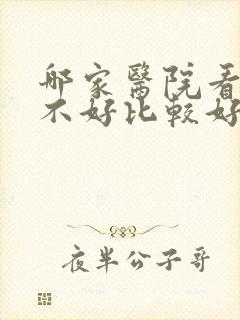 哪家醫院看
不好比較好
夜半公子哥